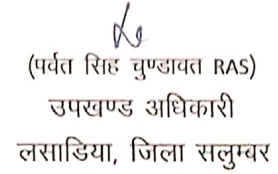 (पर्वत सिंह चुण्डावत RAS)
उपखण्ड अधिकारी
लसाडिया, जिला सलुम्बर